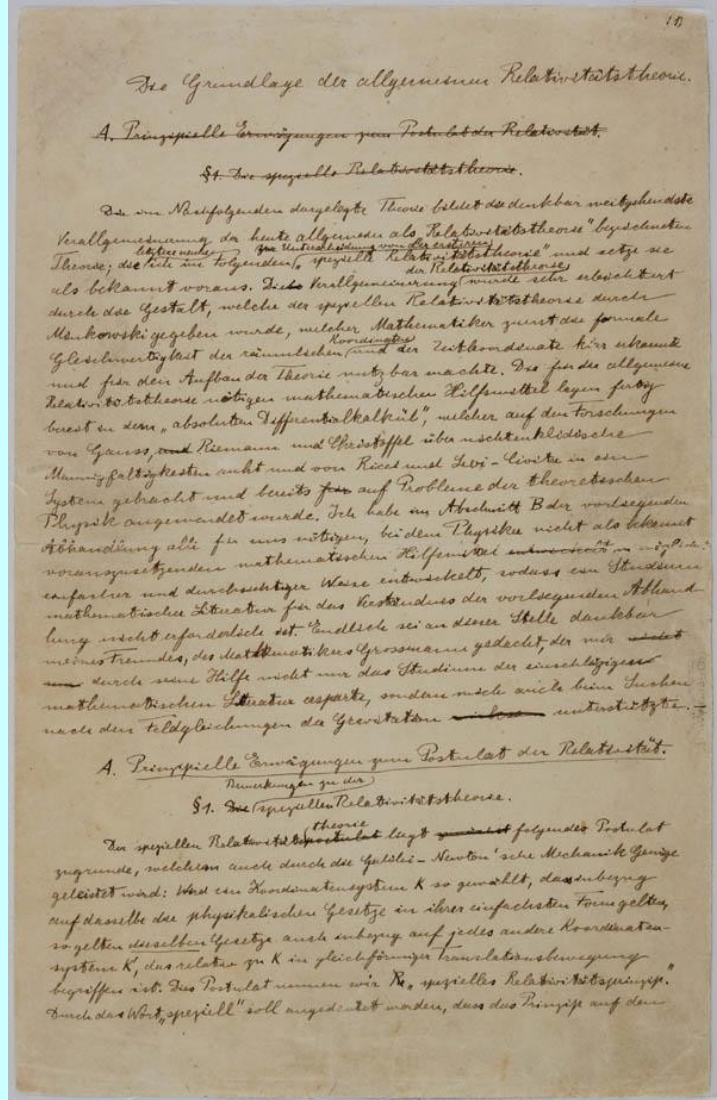 Die Grundlage der allgemeinen Relativitätstheorie.
A. Prinzipielle Erwägungen zum Postulat der Relativität.
§1. Die spezielle Relativitätstheorie.
Die im Nachfolgenden dargelegte Theorie bildet die denkbar weitgehendste
Verallgemeinerung der heute allgemein als „Relativitätstheorie" bezeichneten
letztere nenne zur Unterscheidung von der ersteren
Theorie; die ich im Folgenden „spezielle Relativitätstheorie" und setze sie
der Relativitätstheorie
als bekannt voraus. Die Verallgemeinerung wurde sehr erleichtert
durch die Gestalt, welche der speziellen Relativitätstheorie durch
Minkowski gegeben wurde, welcher Mathematiker zuerst die formale
Koordinaten
Gleichwertigkeit der räumlichen und der Zeitkoordinate klar erkannte
und für den Aufbau der Theorie nutzbar machte. Die für die allgemeine
Relativitätstheorie nötigen mathematischen Hilfsmittel lagen fertig
bereit in dem „absoluten Differentialkalkül", welcher auf den Forschungen
von Gauss, und Riemann und Christoffel über nichteuklidische
Mannigfaltigkeiten ruht und von Ricci und Levi-Civita in ein
System gebracht und bereits für auf Probleme der theoretischen
Physik angewendet wurde. Ich habe im Abschnitt B der vorliegenden
Abhandlung alle für uns nötigen, bei dem Physiker nicht als bekannt
vorauszusetzenden mathematischen Hilfsmittel entwickelt in möglichst
einfacher und durchsichtiger Weise entwickelt, sodass ein Studium
mathematischer Literatur für das Verständnis der vorliegenden Abhand
lung nicht erforderlich ist. Endlich sei an dieser Stelle dankbar
meines Freundes, des Mathematikers Grossmann gedacht, der mir
durch seine Hilfe nicht nur das Studium der einschlägigen
mathematischen Literatur ersparte, sondern mich auch beim Suchen
nach den Feldgleichungen der Gravitation unterstützte.
A. Prinzipielle Erwägungen zum Postulat der Relativität.
Bemerkungen zu der
§1. Die speziellen Relativitätstheorie.
theorie
Der speziellen Relativitätspostulat liegt folgendes Postulat
zugrunde, welchem auch durch die Galilei-Newton'sche Mechanik Genüge
geleistet wird: Wird ein Koordinatensystem K so gewählt, dass inbezug
auf dasselbe die physikalischen Gesetze in ihrer einfachsten Form gelten,
so gelten dieselben Gesetze auch inbezug auf jedes andere Koordinaten-
system K', das relativ zu K in gleichförmiger Translationsbewegung
begriffen ist. Dies Postulat nennen wir „spezielles Relativitätsprinzip."
Durch das Wort „speziell" soll angedeutet werden, dass das Prinzip auf den